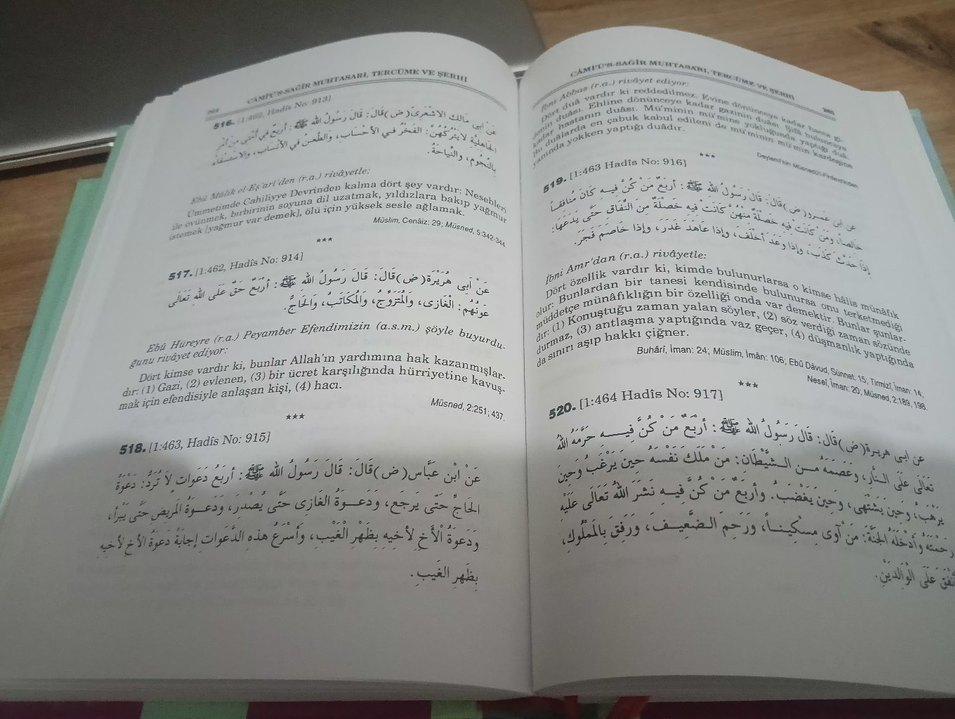 CÂMİÜ'S-SAĞÎR MUHTASARI, TERCÜME VE ŞERHİ
516. [1:462, Hadîs No: 913]
عَنْ أَبِي مَالِكٍ الْأَشْعَرِيِّ (ض) قَالَ: قَالَ رَسُولُ اللهِ ﷺ: أَرْبَعٌ فِي أُمَّتِي مِنْ أَمْرِ
الْجَاهِلِيَّةِ لَا يَتْرُكُهُنَّ: الْفَخْرُ فِي الْأَحْسَابِ، وَالطَّعْنُ فِي الْأَنْسَابِ، وَالْاِسْتِسْقَاءُ
بِالنُّجُومِ، وَالنِّيَاحَةُ.
Ebû Mâlik el-Eş'arî'den (r.a.) rivâyetle:
Ümmetimde Cahiliyye Devrinden kalma dört şey vardır: Nesebleri
ile övünmek, birbirinin soyuna dil uzatmak, yıldızlara bakıp yağmur
istemek [yağmur var demek], ölü için yüksek sesle ağlamak.
Müslim, Cenâiz: 29; Müsned, 5:342-344.
***
517. [1:462, Hadîs No: 914]
عَنْ أَبِي هُرَيْرَةَ (ض) قَالَ: قَالَ رَسُولُ اللهِ ﷺ: أَرْبَعٌ حَقٌّ عَلَى اللهِ تَعَالَى
عَوْنُهُمْ: الْغَازِي، وَالْمُتَزَوِّجُ، وَالْمُكَاتَبُ، وَالْحَاجُّ.
Ebû Hüreyre (r.a.) Peyamber Efendimizin (a.s.m.) şöyle buyurdu-
ğunu rivâyet ediyor:
Dört kimse vardır ki, bunlar Allah'ın yardımına hak kazanmışlar-
dır: (1) Gazi, (2) evlenen, (3) bir ücret karşılığında hürriyetine kavuş-
mak için efendisiyle anlaşan kişi, (4) hacı.
Müsned, 2:251; 437.
***
518. [1:463, Hadîs No: 915]
عَنْ ابْنِ عَبَّاسٍ (ض) قَالَ: قَالَ رَسُولُ اللهِ ﷺ: أَرْبَعُ دَعَوَاتٍ لَا تُرَدُّ: دَعْوَةُ
الْحَاجِّ حَتَّى يَرْجِعَ، وَدَعْوَةُ الْغَازِي حَتَّى يَصْدُرَ، وَدَعْوَةُ الْمَرِيضِ حَتَّى يَبْرَأَ،
وَدَعْوَةُ الْأَخِ لِأَخِيهِ بِظَهْرِ الْغَيْبِ، وَأَسْرَعُ هَذِهِ الدَّعَوَاتِ إِجَابَةً دَعْوَةُ الْأَخِ لِأَخِيهِ
بِظَهْرِ الْغَيْبِ.
CÂMİÜ'S-SAĞÎR MUHTASARI, TERCÜME VE ŞERHİ
İbni Abbas (r.a.) rivâyet ediyor:
Dört duâ vardır ki reddedilmez. Evine dönünceye kadar hacca gi-
duâsı. Ehline dönünceye kadar gazinin duâsı.
kadar hastanın duâsı. Mü'minin mü'mine yokluğunda yaptığı duâ.
Bu duâlarda en çabuk kabul edileni de mü'minin mü'min kardeşine
yanında yokken yaptığı duâdır.
Deylemî'nin Müsnedü'l-Firdevs'inden
***
519. [1:463 Hadîs No: 916]
عَنِ ابْنِ عَمْرٍو (ض) قَالَ: قَالَ رَسُولُ اللهِ ﷺ: أَرْبَعٌ مَنْ كُنَّ فِيهِ كَانَ مُنَافِقًا
خَالِصًا، وَمَنْ كَانَتْ فِيهِ خَصْلَةٌ مِنْهُنَّ كَانَتْ فِيهِ خَصْلَةٌ مِنَ النِّفَاقِ حَتَّى يَدَعَهَا:
إِذَا حَدَّثَ كَذَبَ، وَإِذَا وَعَدَ أَخْلَفَ، وَإِذَا عَاهَدَ غَدَرَ، وَإِذَا خَاصَمَ فَجَرَ.
İbni Amr'dan (r.a.) rivâyetle:
Dört özellik vardır ki, kimde bulunurlarsa o kimse hâlis münâfık
olur. Bunlardan bir tanesi kendisinde bulunursa onu terketmediği
müddetçe münâfıklığın bir özelliği onda var demektir. Bunlar şunlar-
dır: (1) Konuştuğu zaman yalan söyler, (2) söz verdiği zaman sözünde
durmaz, (3) antlaşma yaptığında vaz geçer, (4) düşmanlık yaptığında
da sınırı aşıp hakkı çiğner.
Buhârî, İman: 24; Müslim, İmân: 106; Ebû Dâvud, Sünnet: 15; Tirmizî, İman: 14,
Neseî, İman: 20, Müsned, 2:189, 198.
***
520. [1:464 Hadîs No: 917]
عَنْ أَبِي هُرَيْرَةَ (ض) قَالَ: قَالَ رَسُولُ اللهِ ﷺ: أَرْبَعٌ مَنْ كُنَّ فِيهِ حَرَّمَهُ اللهُ
تَعَالَى عَلَى النَّارِ، وَعَصَمَهُ مِنَ الشَّيْطَانِ: مَنْ مَلَكَ نَفْسَهُ حِينَ يَرْغَبُ وَحِينَ
يَرْهَبُ، وَحِينَ يَشْتَهِي، وَحِينَ يَغْضَبُ. وَأَرْبَعٌ مَنْ كُنَّ فِيهِ نَشَرَ اللهُ تَعَالَى عَلَيْهِ
رَحْمَتَهُ وَأَدْخَلَهُ الْجَنَّةَ: مَنْ آوَى مِسْكِينًا، وَرَحِمَ الضَّعِيفَ، وَرَفِقَ بِالْمَمْلُوكِ،
عَلَى الْوَالِدَيْنِ.